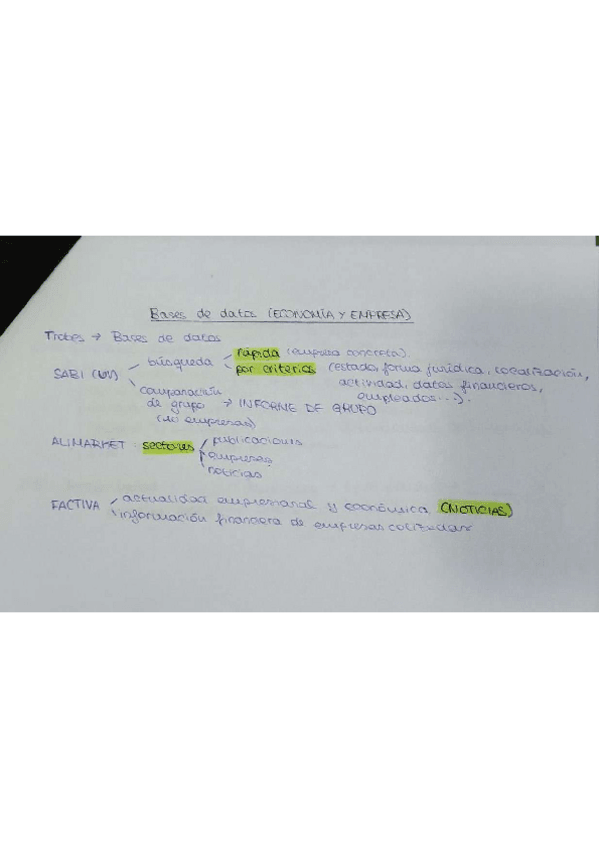 Bases de datos (ECONOMÍA Y EMPRESA)
Trobes → Bases de datos
SABI (UV) búsqueda rápida (empresa concreta).
por criterios (estados, forma jurídica, localización,
actividad, datos financieros,
empleados...).
comparación
de grupo → INFORME DE GRUPO
(de empresas)
ALIMARKET: sectores publicaciones
empresas
noticias
FACTIVA actualidad empresarial y económica (NOTICIAS)
información financiera de empresas cotizadas